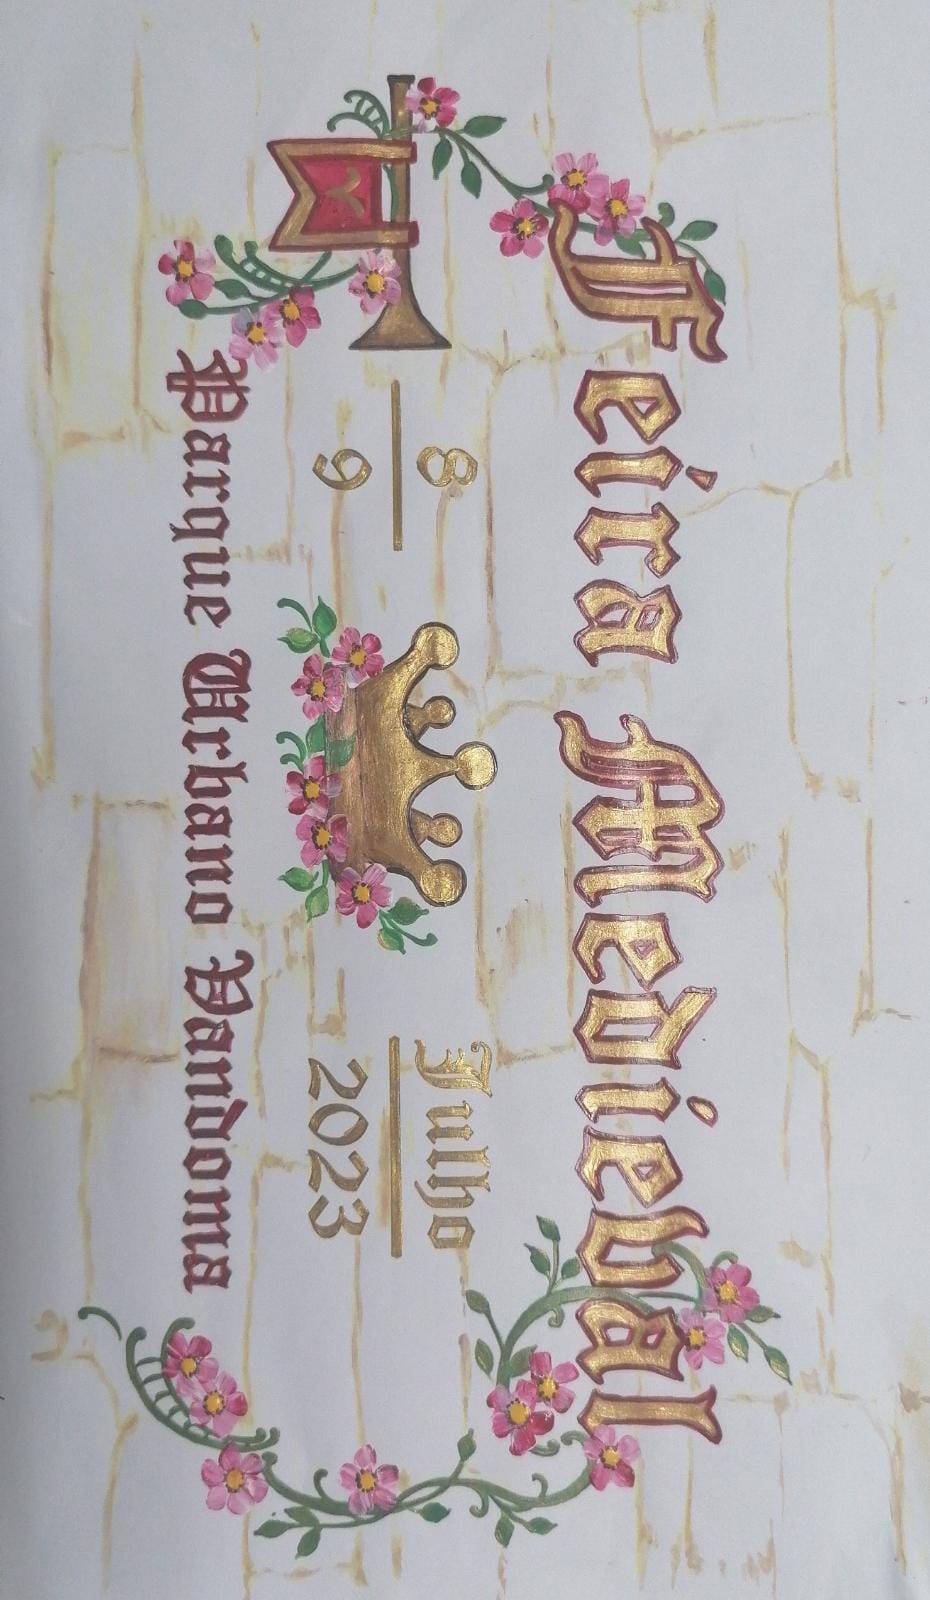 Feira Medieval
8
9
Julho
2023
Parque Urbano Vandoma